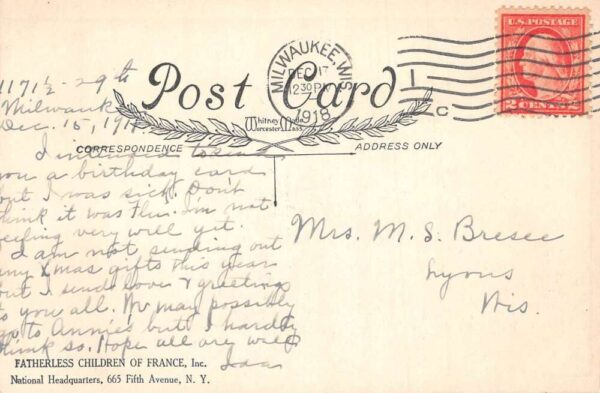 1171½ - 29th
Milwaukee
Dec. 15, 1918
I intended to send
you a birthday card
but I was sick. Don't
think it was Flu. I'm not
feeling very well yet.
I am not sending out
any Xmas gifts this year
but I send love & greeting
to you all. We may possibly
go to Annie's but I hardly
think so. Hope all are well
Post Card
Whitney Made
Worcester, Mass.
CORRESPONDENCE
ADDRESS ONLY
MILWAUKEE, WIS.
DEC 17
12 30 PM
1918
C
U.S. POSTAGE
2 CENTS 2
Mrs. M. S. Bresee
Lyons
Wis.
FATHERLESS CHILDREN OF FRANCE, Inc.
National Headquarters, 665 Fifth Avenue, N. Y.